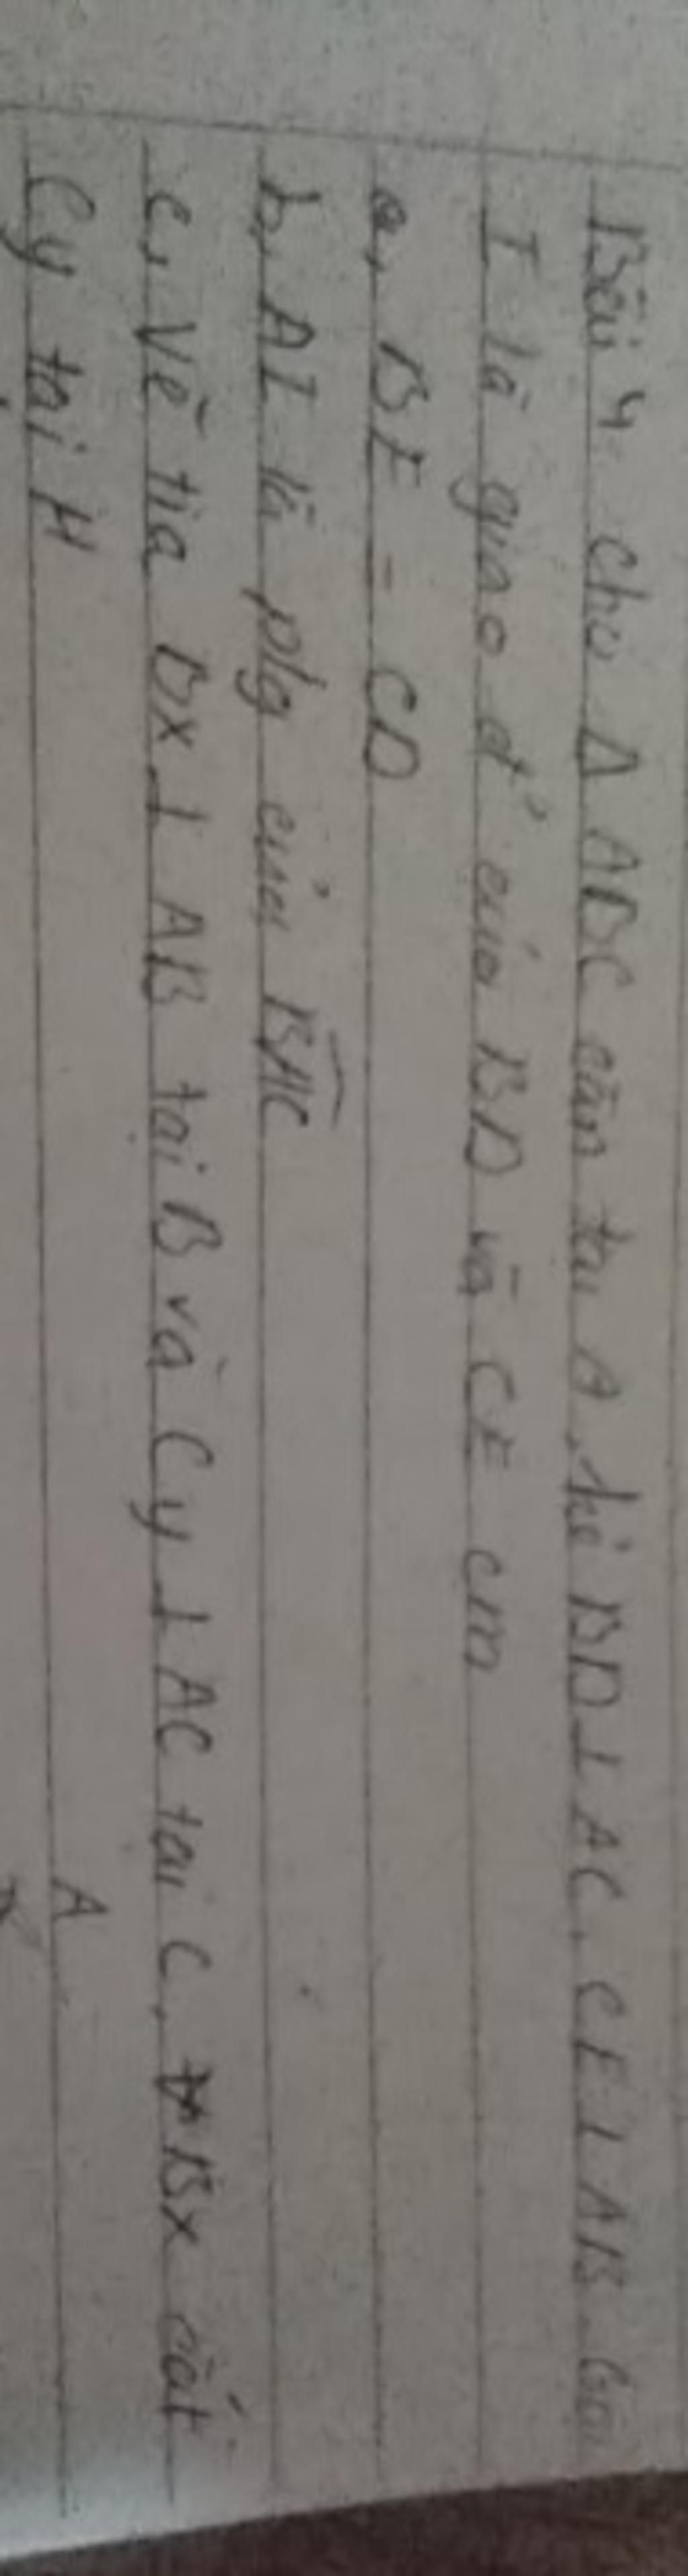 Bài 4. cho Δ ABC cân tại A, kẻ BD⊥AC, CE⊥AB. Gọi
I là giao đ' của BD và CE cm
a, BE = CD
b, AI là p/g của BAC
c, Vẽ tia Bx ⊥ AB tại B và Cy ⊥ AC tại C, Bx cắt
Cy tại H
A